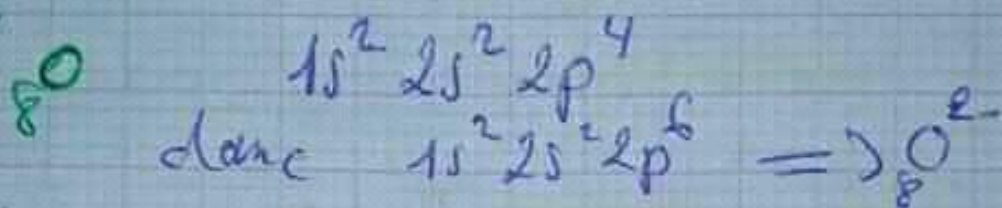 ₈O 1s² 2s² 2p⁴
donc 1s² 2s² 2p⁶ => ₈O²⁻